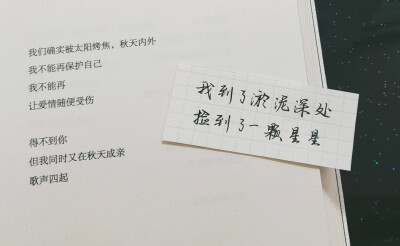 我们确实被太阳烤焦，秋天内外
我不能再保护自己
我不能再
让爱情随便受伤
得不到你
但我同时又在秋天成亲
歌声四起
我到了淤泥深处
捡到了一颗星星